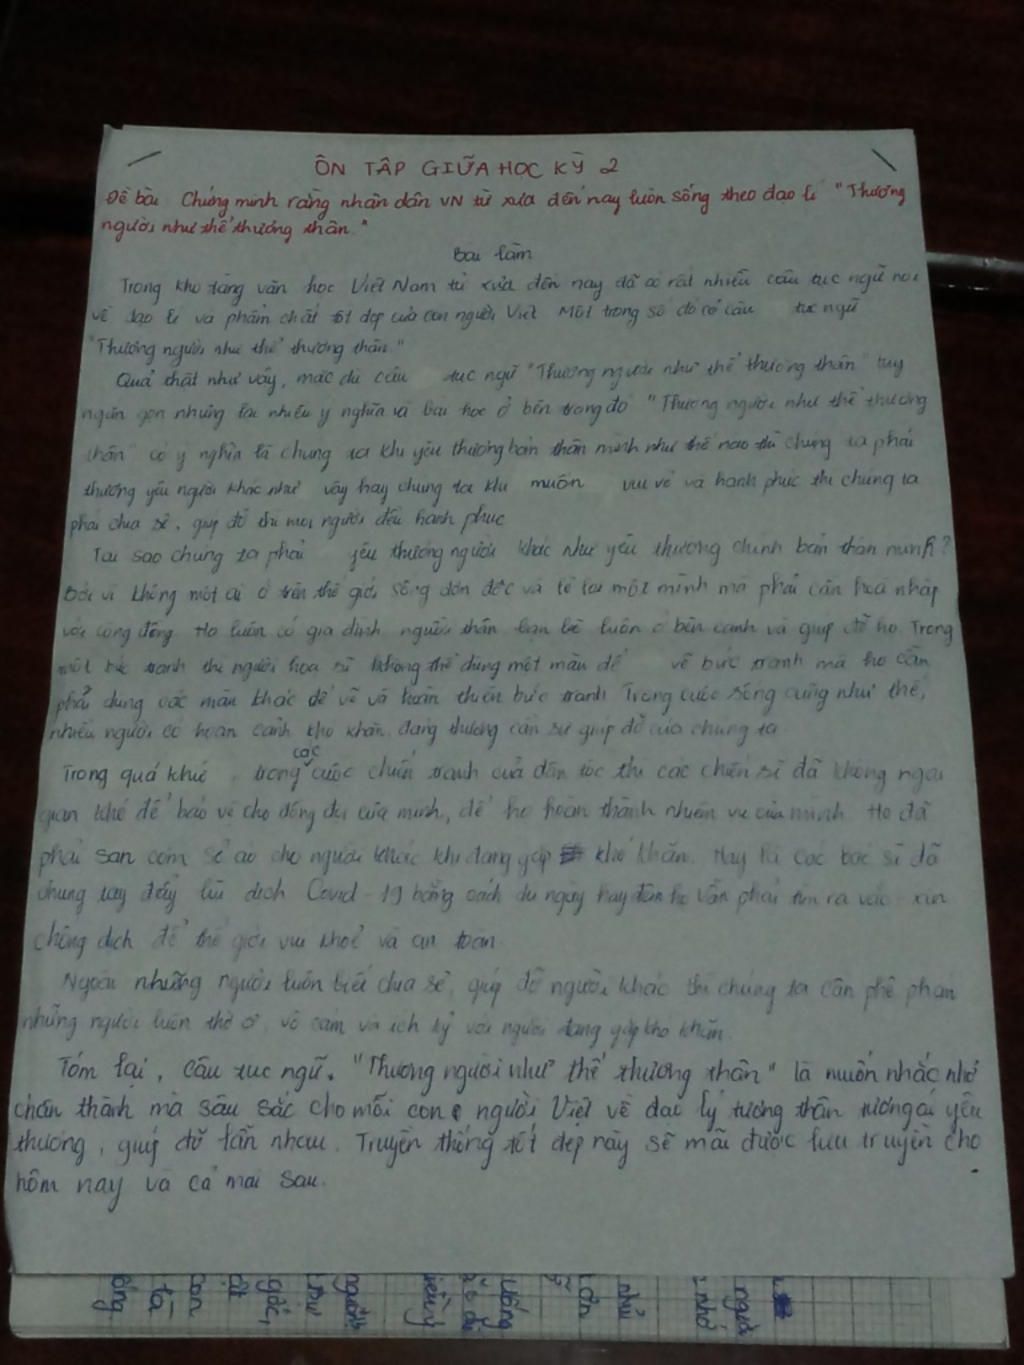 ÔN TẬP GIỮA HỌC KỲ 2
Đề bài Chứng minh rằng nhân dân VN từ xưa đến nay luôn sống theo đạo lí "Thương
người như thể thương thân."
Bài làm
Trong kho tàng văn học Việt Nam từ xưa đến nay đã có rất nhiều câu tục ngữ nói
về đạo lí và phẩm chất tốt đẹp của con người Việt Một trong số đó có câu tục ngữ
"Thương người như thể thương thân."
Quả thật như vậy, mặc dù câu tục ngữ "Thương người như thể thương thân" tuy
ngắn gọn nhưng lại nhiều ý nghĩa và bài học ở bên trong đó "Thương người như thể thương
thân" có ý nghĩa là chúng ta khi yêu thương bản thân mình như thế nào thì chúng ta phải
thương yêu người khác như vậy hay chúng ta khi muốn vui vẻ và hạnh phúc thì chúng ta
phải chia sẻ, giúp đỡ thì mọi người đều hạnh phúc
Tại sao chúng ta phải yêu thương người khác như yêu thương chính bản thân mình?
Bởi vì không một ai ở trên thế giới sống đơn độc và lẻ loi một mình mà phải cần hoà nhập
với cộng đồng Họ luôn có gia đình người thân bạn bè luôn ở bên cạnh và giúp đỡ họ. Trong
một bức tranh thì người họa sĩ không thể dùng một màu để vẽ bức tranh mà họ cần
phải dùng các màu khác để vẽ và hoàn thiện bức tranh Trong cuộc sống cũng như thế,
nhiều người có hoàn cảnh khó khăn, đáng thương cần sự giúp đỡ của chúng ta
Trong quá khứ, trong các cuộc chiến tranh của dân tộc thì các chiến sĩ đã không ngại
gian khổ để bảo vệ cho đồng đội của mình, để họ hoàn thành nhiệm vụ của mình Họ đã
phải san cơm sẻ áo cho người khác khi đang gặp khó khăn. Hay là các bác sĩ đã
chung tay đẩy lùi dịch Covid-19 bằng cách dù ngày hay đêm họ vẫn phải tìm ra vắc-xin
chống dịch để thế giới vui khoẻ và an toàn.
Ngoài những người luôn biết chia sẻ, giúp đỡ người khác thì chúng ta cần phê phán
những người luôn thờ ơ, vô cảm và ích kỷ với người đang gặp khó khăn.
Tóm lại, câu tục ngữ. "Thương người như thể thương thân" là muốn nhắc nhở
chân thành mà sâu sắc cho mỗi con người Việt về đạo lý tương thân tương ái yêu
thương, giúp đỡ lẫn nhau. Truyền thống tốt đẹp này sẽ mãi được lưu truyền cho
hôm nay và cả mai sau.